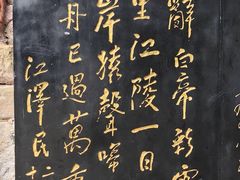 辭白帝彩雲
里江陵一日
岸猿聲啼
舟已過萬重
江澤民